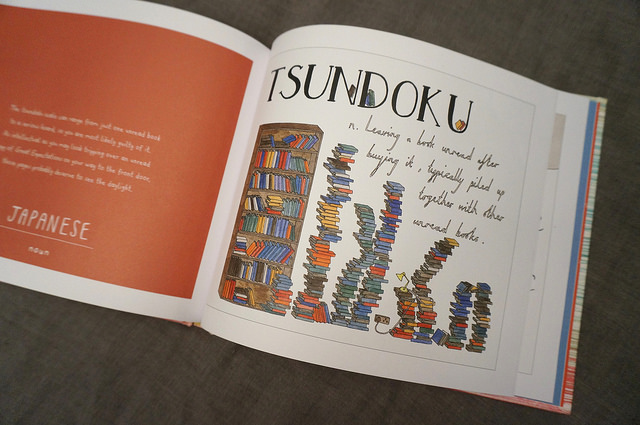 The tsundoku scale can range from just one unread book
to a serious hoard, so you are most likely guilty of it.
As intellectual as you may look tripping over an unread
of Great Expectations on your way to the front door,
those pages probably deserve to see the daylight.
JAPANESE
noun
TSUNDOKU
n. Leaving a book unread after
buying it, typically piled up
together with other
unread books.